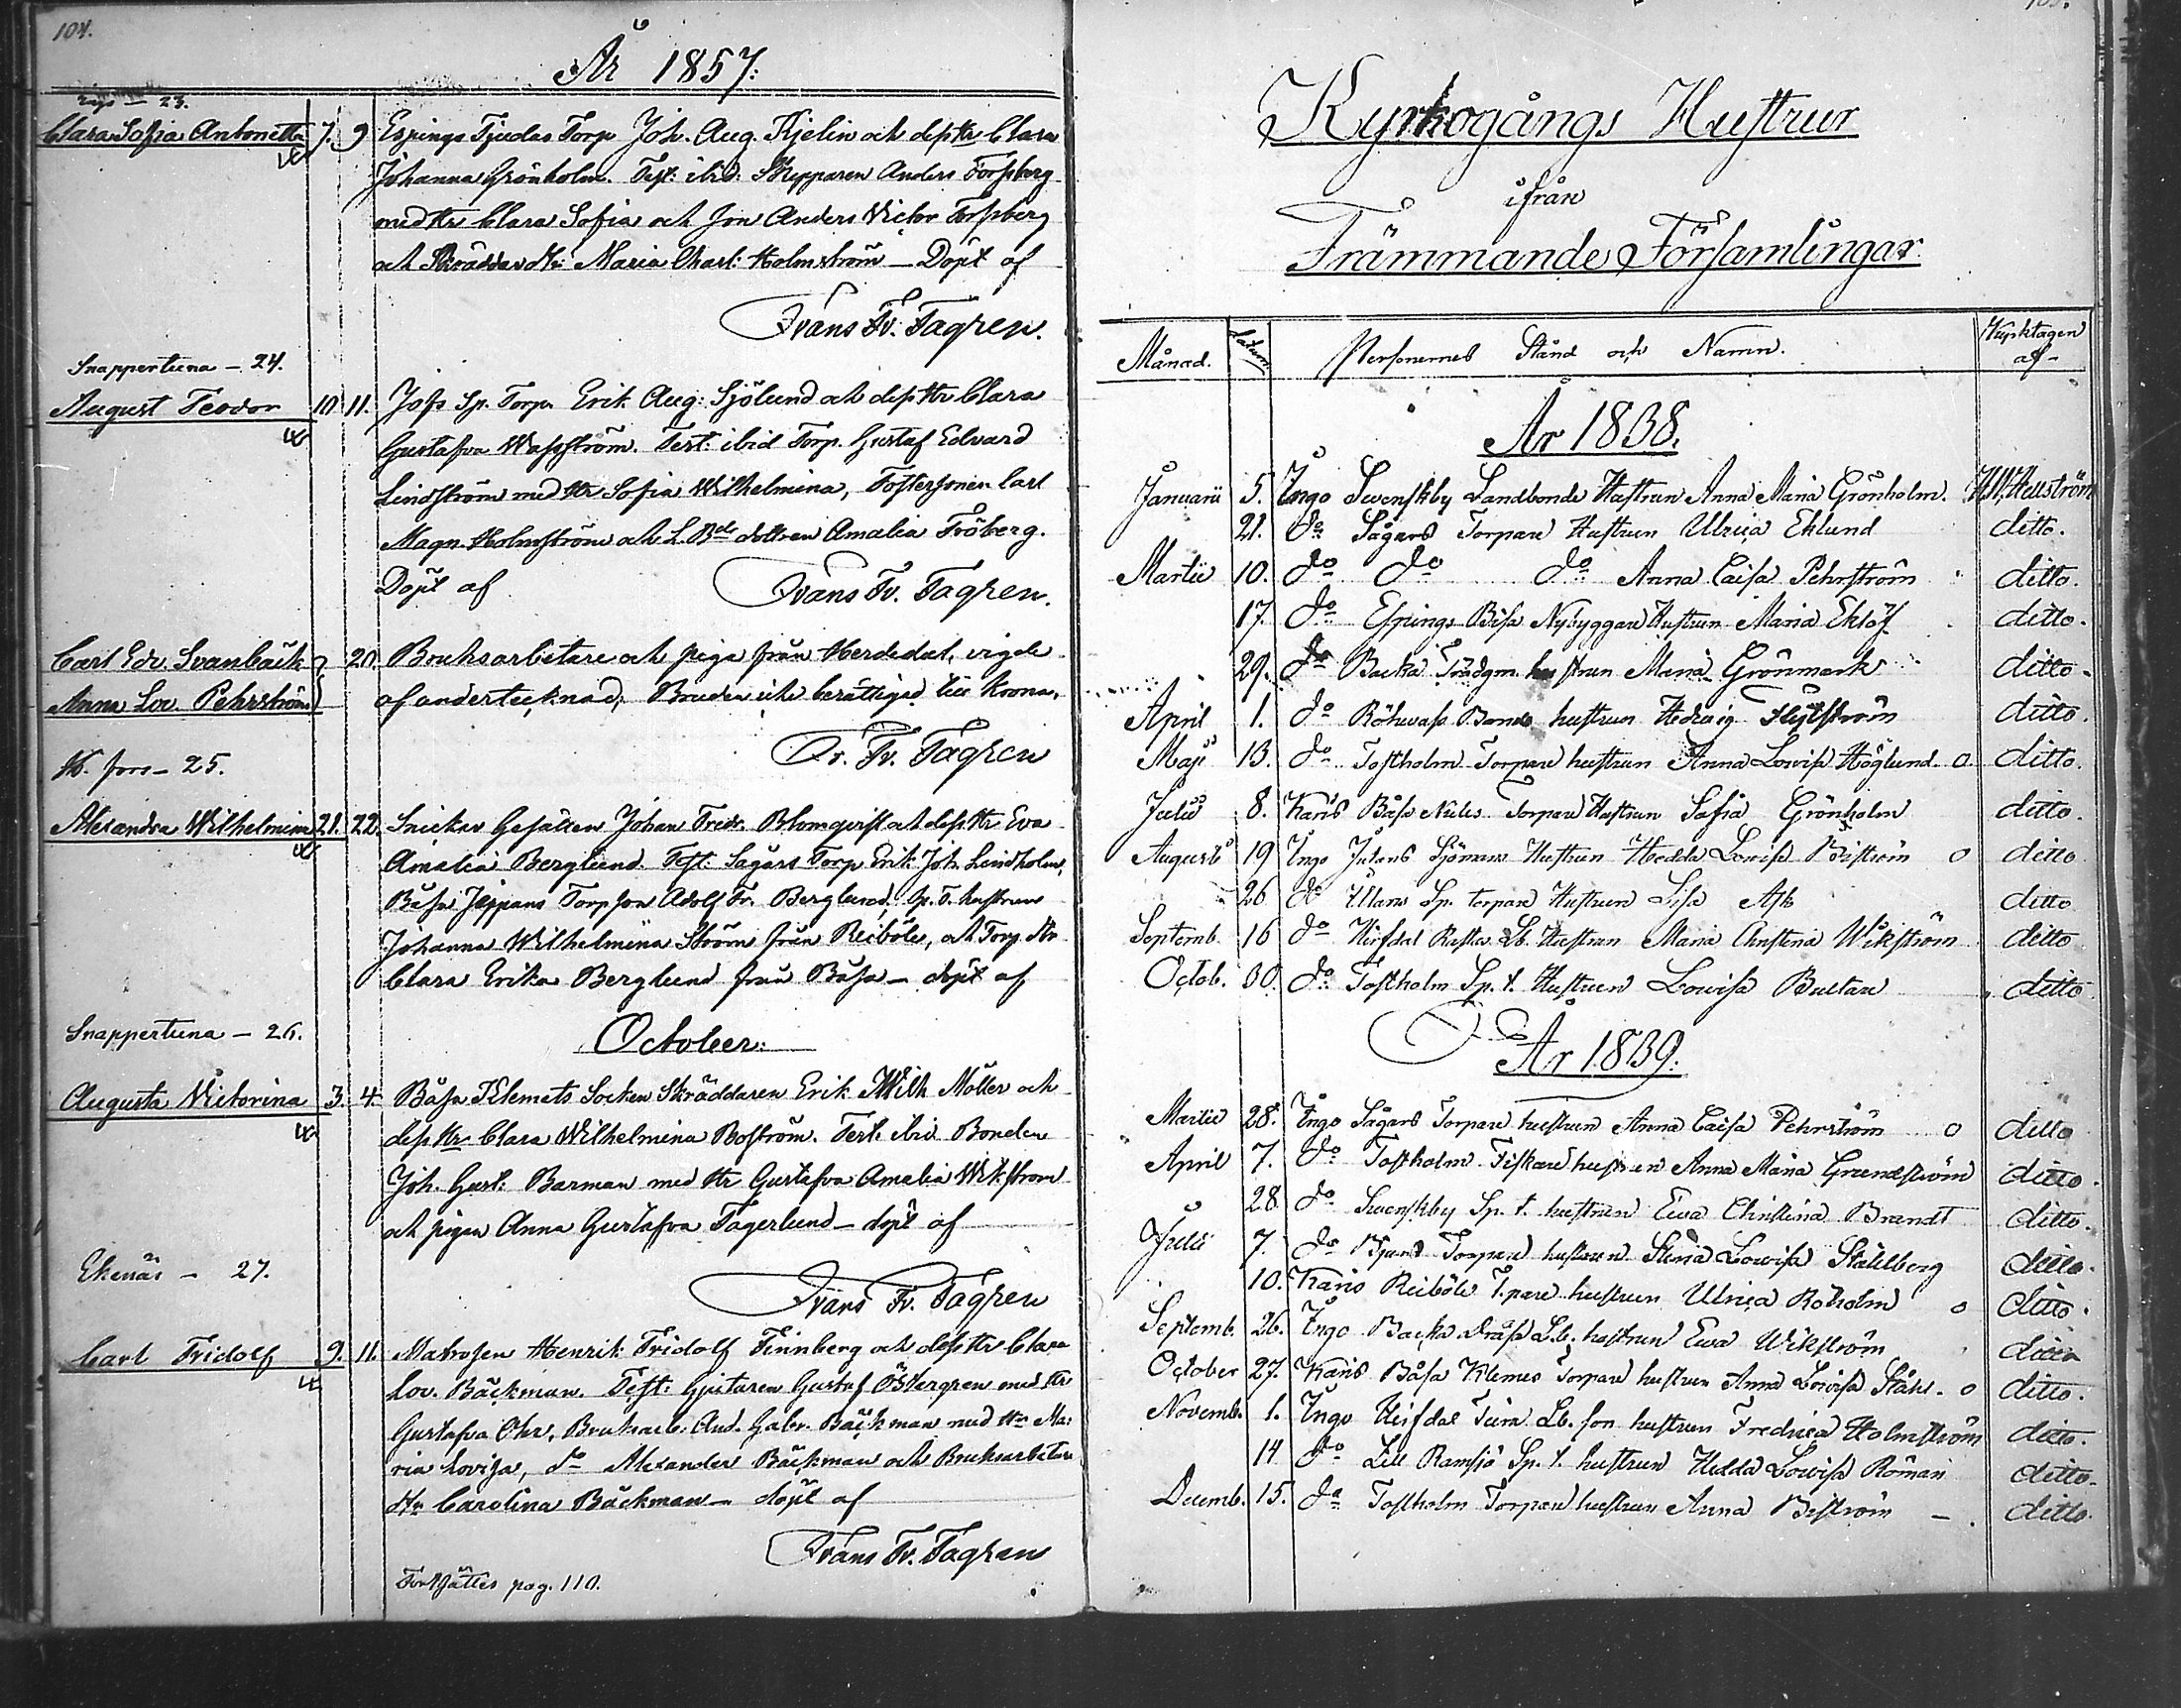 104.
År 1857:
23.
Clara Sofia Antonetta 7. 9 Espings Tjudas Torp. Joh. Aug. Kjelin och dess Hu Clara
Johanna Grönholm. Test: ibid: Skepparen Anders Forssberg
med Hu Clara Sofia och Jon Anders Victor Forssberg
och Skräddar Hu: Maria Charl: Holmström — Döpt af
Frans Fr. Fagren.
Snappertuna — 24.
August Teodor 10 11. Joss Sp. Torp. Erik Aug: Sjölund och dess Hu Clara
Gustafva Wassström. Test: ibid Torp. Gustaf Edvard
Lindström med Hu Sofia Wilhelmina, Fostersonen Carl
Magn. Holmström och L. Bde dottren Amalia Fröberg.
Döpt af Frans Fr. Fagren.
Carl Edv. Svanbäck 20. Bruksarbetare och piga från Herdedal, vigde
Anna Lov. Pehrström af undertecknad, Bruden icke berättigad till krona.
Fr. Fr. Fagren
K. fors — 25.
Alexandra Wilhelmina 21. 22. Snickar Gesällen Johan Fredr. Blomqvist och dess Hr Eva
Amalia Berglund. Test: Sågars Torp Erik Joh. Lindholm,
Båsa Jeppans Torp son Adolf Fr. Berglund, Sp. T. hustrun
Johanna Wilhelmina Ström från Reiböle, och Torp. Hr
Clara Erika Berglund från Båsa — döpt af
Snappertuna — 26.
October:
Augusta Victorina 3. 4. Båsa Klemets Socken Skräddaren Erik Wilh Möller och
dess Hr Clara Wilhelmina Boström. Test. ibid Bonden
Joh. Gust: Barman med Hr Gustafva Amalia Wikström
och pigan Anna Gustafva Fagerlund — döpt af
Ekenäs — 27.
Frans Fr. Fagren
Carl Fridolf 9. 11. Matrosen Henrik Fridolf Finnberg och dess Hr Clara
Lov. Bäckman. Test: Gjutaren Gustaf Östergren med Hr
Gustafva Ohr, Bruksarb: And. Gabr. Bäckman med Hr Ma:
ria Lovisa, do Alexander Bäckman och Bruksarbetare
Hr Carolina Bäckman — döpt af
Frans Fr. Fagren
Fortsättes pag. 110.
Kyrkogångs Hustrur
ifrån
Främmande Församlingar
Månad. Datum Personernes Stånd och Namn. Kyrktagen af
År 1838.
Januarii 5. Ingo Svenskby Landbonde Hustrun Anna Maria Grönholm. H.W. Hellström
21. do Sågars Torpare Hustrun Ulrica Eklund ditto.
Martii 10. do do do Anna Caisa Pehrström ditto.
17. do Espings Bisa Nybyggare Hustrun Maria Eklöf ditto.
29. do Backa Trädgm. hustrun Maria Grönmark ditto.
April 1. do Bonde hustrun Hedvig Flykström ditto.
Maji 13. do Tostholm Torpare hustrun Anna Lovisa Höglund. o ditto.
Julii 8. Karis Båsa Torpare Hustrun Sofia Grönholm ditto.
Augusti 19 Ingo Jutans Sjöman Hustrun Hedda Lovisa o ditto
26 do Ulans Sp. torpare Hustrun Lisa Ask ditto
Septemb. 16 do Herfdal Lb. Hustrun Maria Christina Wikström ditto
Octob. 30. do Tostholm Sp. t. Hustrun Lovisa Bultare ditto.
År 1839:
Martii 28. Ingo Sågars Torpare hustrun Anna Caisa Pehrström o ditto
April 7. do Tostholm Fiskare hustrun Anna Maria Grundström ditto.
28 do Svenskby Sp. t. hustrun Ewa Christina Brandt ditto.
Julii 7. do Torpare hustrun Stina Lovisa Stålberg ditto.
10. Karis Reiböle T.pare hustrun Ulrica Roholm o ditto.
Septemb. 26. Ingo Backa Lb. hustrun Ewa Wikström ditto
October 27. Karis Båsa Klemes Torpare hustrun Anna Lovisa Ståhl. o ditto.
Novemb. 1. Ingo Herfdal Lb. son hustrun Fredrica Holmström ditto.
14 do Lill Ramsjö Sp. t. hustrun Hedda Lovisa Roman ditto.
Decemb. 15. do Tostholm Torpare hustrun Anna Boström — ditto.